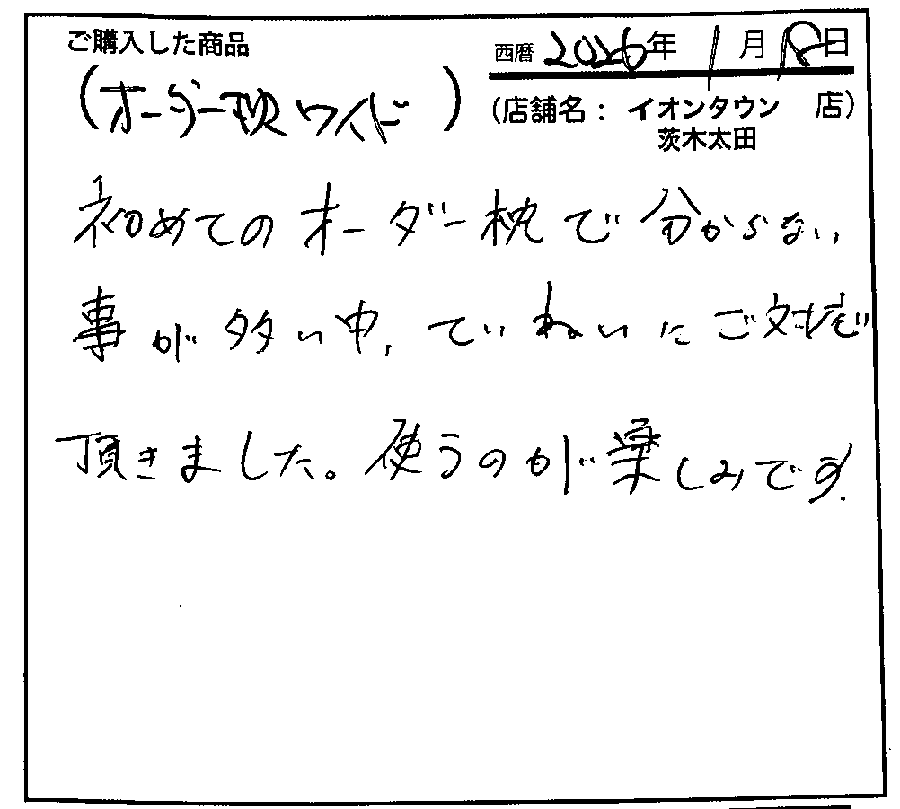 ご購入した商品
西暦 2026年 1月8日
(オーダー枕ワイド)
(店舗名: イオンタウン 店)
茨木太田
初めてのオーダー枕で分からない
事が多い中、ていねいにご対応
頂きました。使うのが楽しみです。